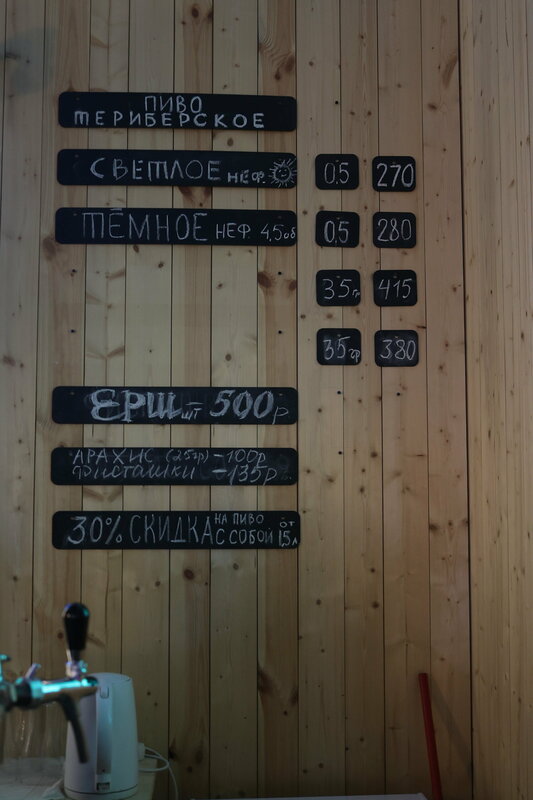 ПИВО
ТЕРИБЕРСКОЕ
СВЕТЛОЕ НЕФ. 0,5 270
ТЁМНОЕ НЕФ 4,5 об 0,5 280
35гр 415
35гр 380
ЁРШ шт - 500р
АРАХИС (25гр) - 100р
ФИСТАШКИ - 135р
30% СКИДКА НА ПИВО С СОБОЙ ОТ 1,5л